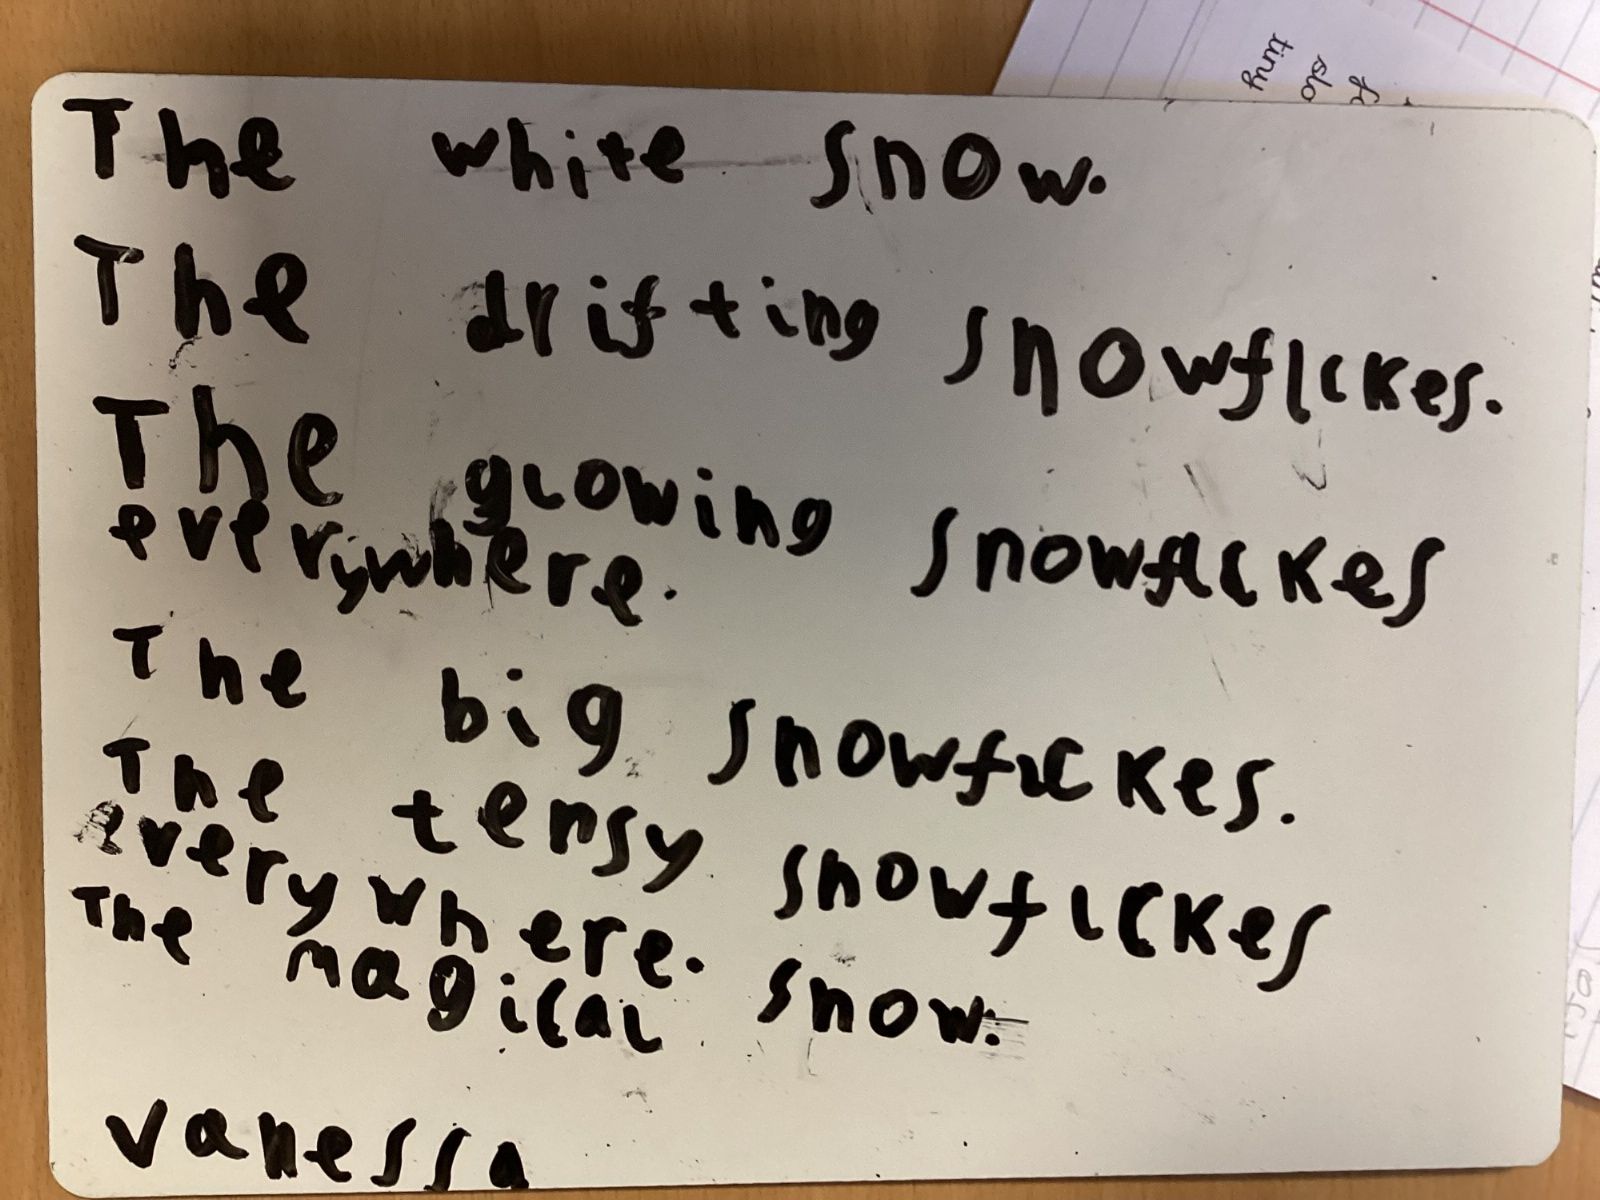 The white snow.
The drifting snowflckes.
The glowing snowflckes
everywhere.
The big snowflckes.
The tensy snowflckes
everywhere.
The magical snow.
vanessa
tiny
slo